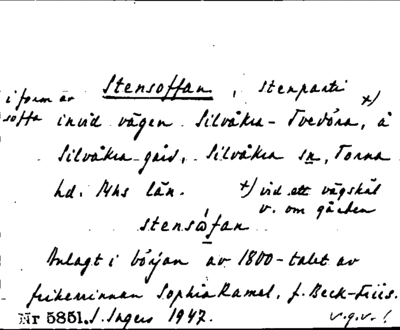 Stensoffan, stenparti x)
i form av soffa invid vägen Silvåkra - Tvedöra, å
Silvåkra gård, Silvåkra sn, Torna
hd. Mhs län. x) vid ett vägskäl
v. om gården
stensòfan
Anlagt i början av 1800-talet av
friherrinnan Sophia Ramel, f. Beck-Friis.
Nr 5851. I. Ingers 1947. v.g.v.!